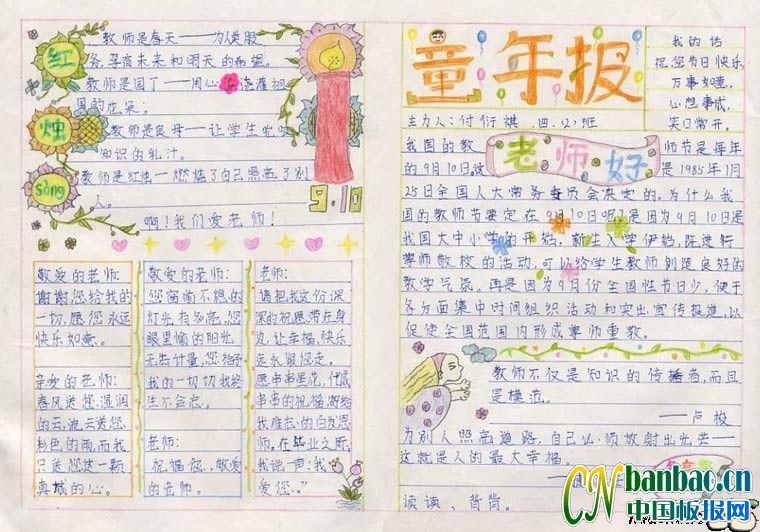 教师是春天——为人类服
务,孕育未来和明天的希望。
教师是园丁——用心浇灌祖
国的花朵。
教师是良母——让学生吮吸
知识的乳汁。
教师是红烛——燃烧了自己照亮了别
人。
啊!我们爱老师!
红
烛
Song
9.10
敬爱的老师:
谢谢您给我的
一切,愿您永远
快乐如意。
亲爱的老师:
春风送您湿润
的云,流云送您
彩色的雨,而我
只送您这一颗
真诚的心。
敬爱的老师:
您窗前不熄的
灯光,有多亮,您
眼里慉的阳光,
无法计量,您给予
我的一切,我终
生不会忘。
老师:
祝福您,敬爱
的老师。
老师:
请把我这份深
深的祝愿带在身
边,让幸福,快乐
永永跟您走。
愿串串星花,代成
串串的祝福,寄给
我难忘的白发恩
师。在毕业之际,
我说一声:我
爱您。”
童年报
我的话
祝您节日快乐
万事如意,
心想事成,
笑口常开。
主力人:付衍棋 四.(2)班
老师好
我国的教师节是每年
的9月10日,这是1985年1月
25日全国人大常务委员会决定的。为什么我
国的教师节要定在9月10日呢?是因为9月10日是
我国大中小学的开始,新生入学伊始,陈进行
尊师敬校的活动,可以给学生教师创造良好的
教学气氛。再是因为9月份全国性节日少,便于
各方面集中时间组织活动和突出宣传报道,以
促使全国范围内形成尊师重教。
教师不仅是知识的传播者,而且
是模范。
——卢梭
为别人照亮道路,自己必须放射出光芒——
这就是人的最大幸福。
读读、背背。
CNbanbao.cn
中国板报网